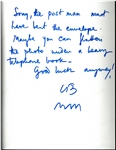 Sorry, the post man must
have bent the envelope.
Maybe you can flatten
the photo under a heavy
telephone book.
Good luck anyway!